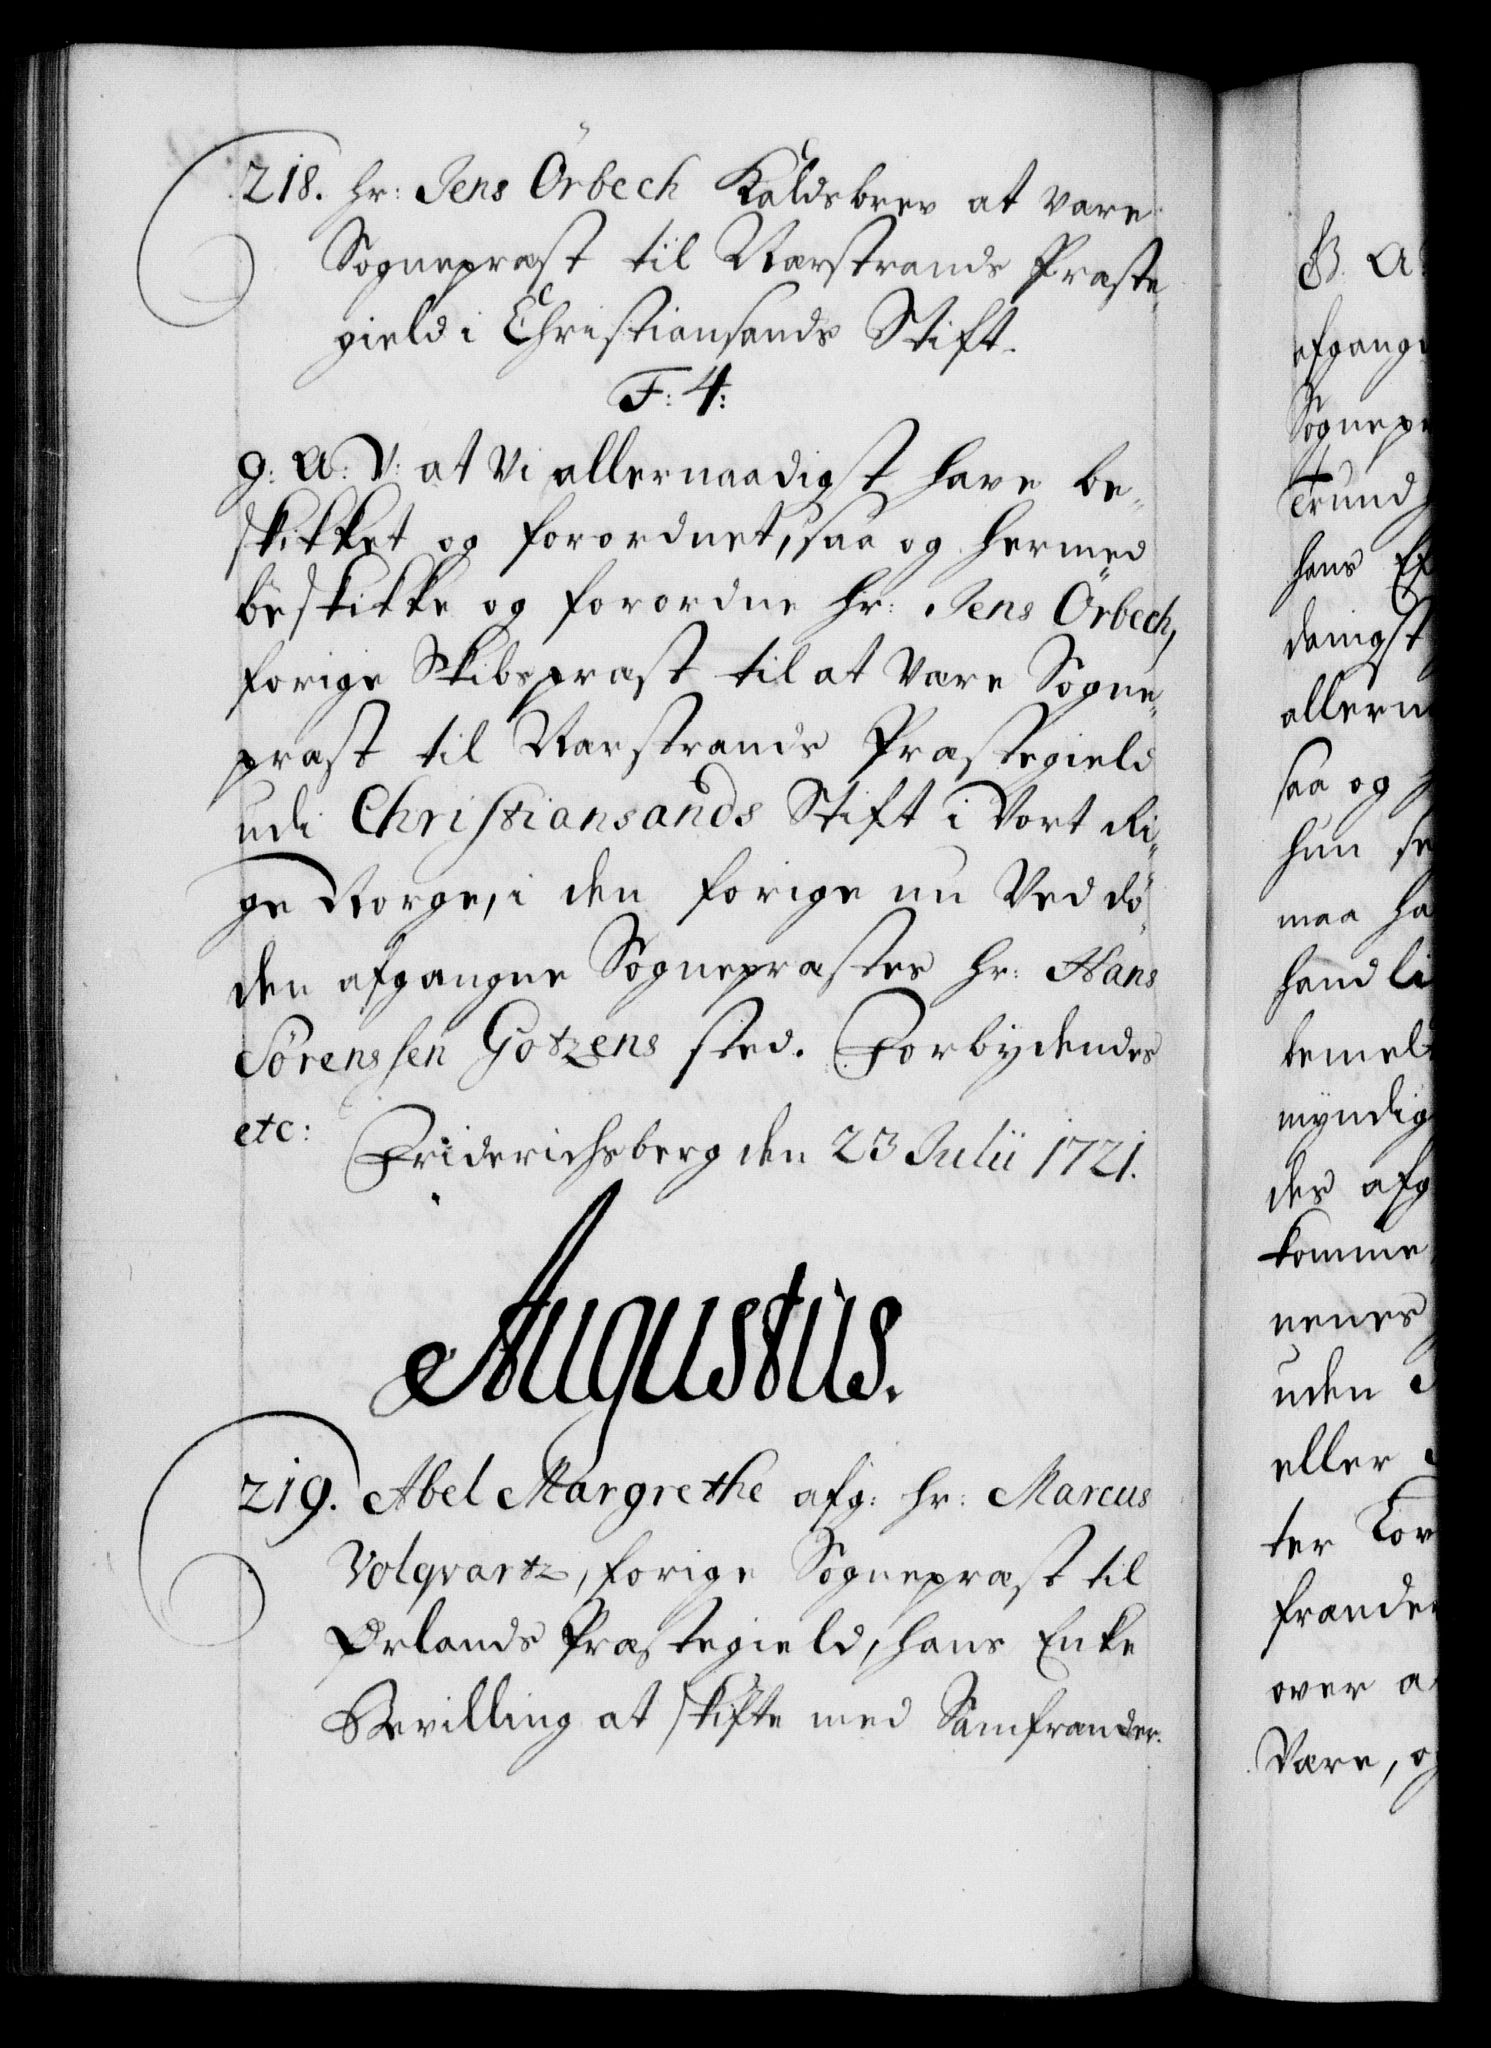 218. hr: Jens Örbech Kaldsbrev at være
Sognepræst til Narstrands Præste-
gield i Christiansands Stift.
F: 4:
g: A: V: at Vi allernaadigst have be-
skikket og forordnet, saa og hermed
beskikke og forordne hr: Jens Örbech,
forige Skibspræst til at være Sogne-
præst til Narstrands Præstegield
udi Christiansands Stift i Vort Ri-
ge Norge, i den forige nu Ved dö-
den afgangne Sognepræstes hr: Hans
Sörenssen Gotzens sted. Forbydendes
etc:
Friderichsberg den 23 Julii 1721.
Augustus.
219. Abel Margrethe afg: hr: Marcus
Volqvartz, forige Sognepræst til
Ørlands Præstegield, hans Enke
Bevilling at skifte med Samfrænder.
G. A:
afgangn
Sognepr
Trund
hans
danigst
allern
saa og
hun se
maa ha
hand li
bemelt
myndig
des afg
komme
nenes
uden
eller
ter Lov
frænder
over a
Være, og